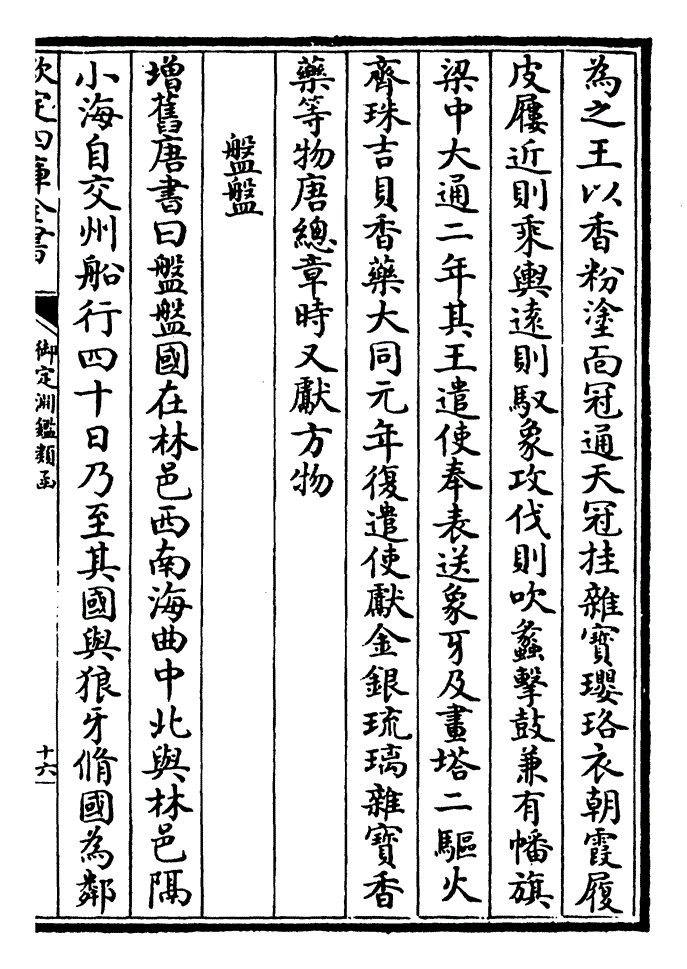 為之王以香粉塗面冠通天冠挂雜寶瓔珞衣朝霞履
皮屨近則乘輿遠則馭象攻伐則吹蠡擊鼓兼有幡旗
梁中大通二年其王遣使奉表送象牙及畫塔二驅火
齊珠吉貝香藥大同元年復遣使獻金銀琉璃雜寶香
藥等物唐總章時又獻方物
盤盤
增舊唐書曰盤盤國在林邑西南海曲中北與林邑隔
小海自交州船行四十日乃至其國與狼牙脩國為鄰
欽定四庫全書
御定淵鑑類函
十六